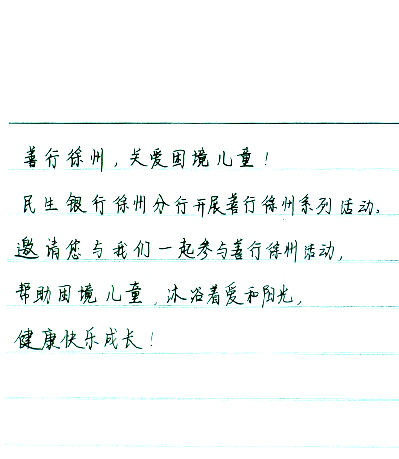 善行徐州，关爱困境儿童！
民生银行徐州分行开展善行徐州系列活动，
邀请您与我们一起参与善行徐州活动，
帮助困境儿童，沐浴着爱和阳光，
健康快乐成长！